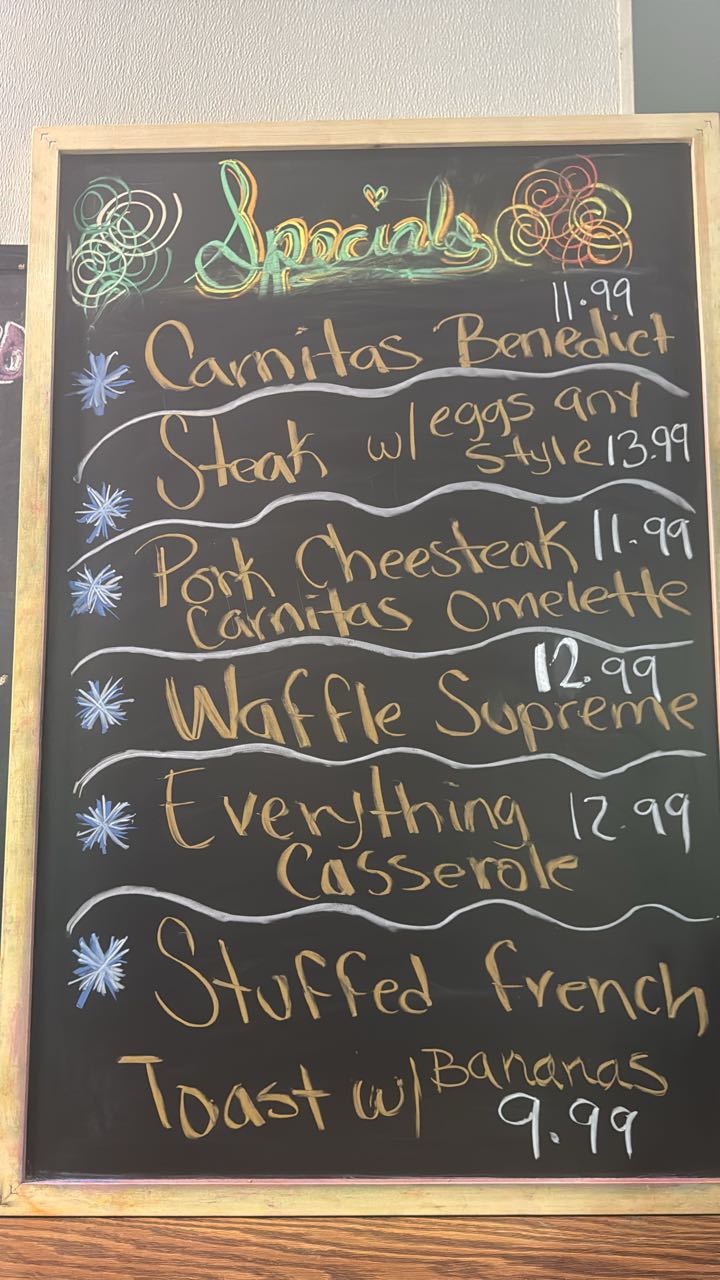 Specials
11.99
Carnitas Benedict
Steak w/ eggs any
style 13.99
Pork Cheesteak 11.99
Carnitas Omelette
12.99
Waffle Supreme
Everything 12.99
Casserole
Stuffed french
Toast w/ Bananas
9.99